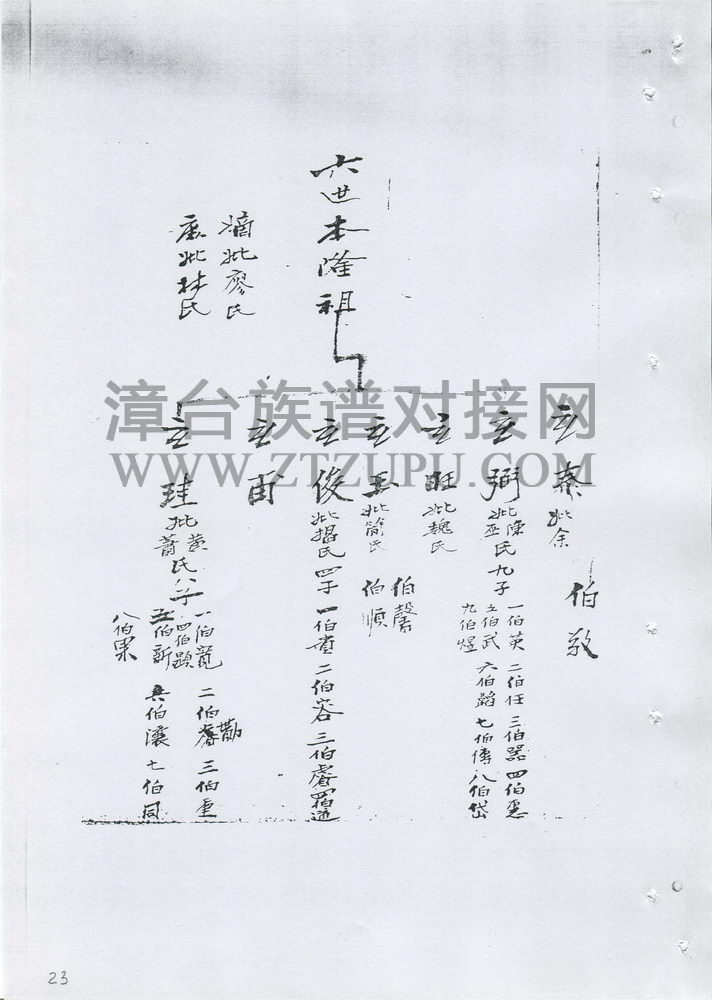 六世本隆祖
嫡妣廖氏
庶妣林氏
立泰妣余
伯敬
立弼妣陳巫氏九子
一伯英 二伯任 三伯器 四伯惠
五伯武 六伯韜 七伯傳 八伯岱
九伯煜
立旺妣魏氏
立玉妣簡氏
伯馨
伯順
立俊妣揭氏四子 一伯 二伯容 三伯睿 四伯
立甫
立珪妣黃蕭氏八子
一伯龍 二伯 三伯重
四伯顕
五伯新 六伯瀼 七伯同
八伯杲
漳台族谱对接网
WWW.ZTZUPU.COM
23